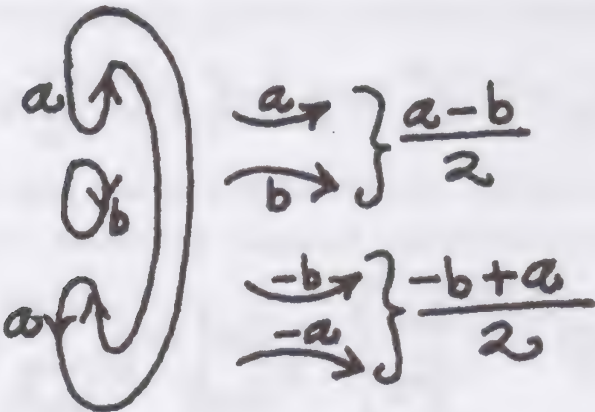 a
b
a
a
b
a-b
2
-b
-a
-b+a
2